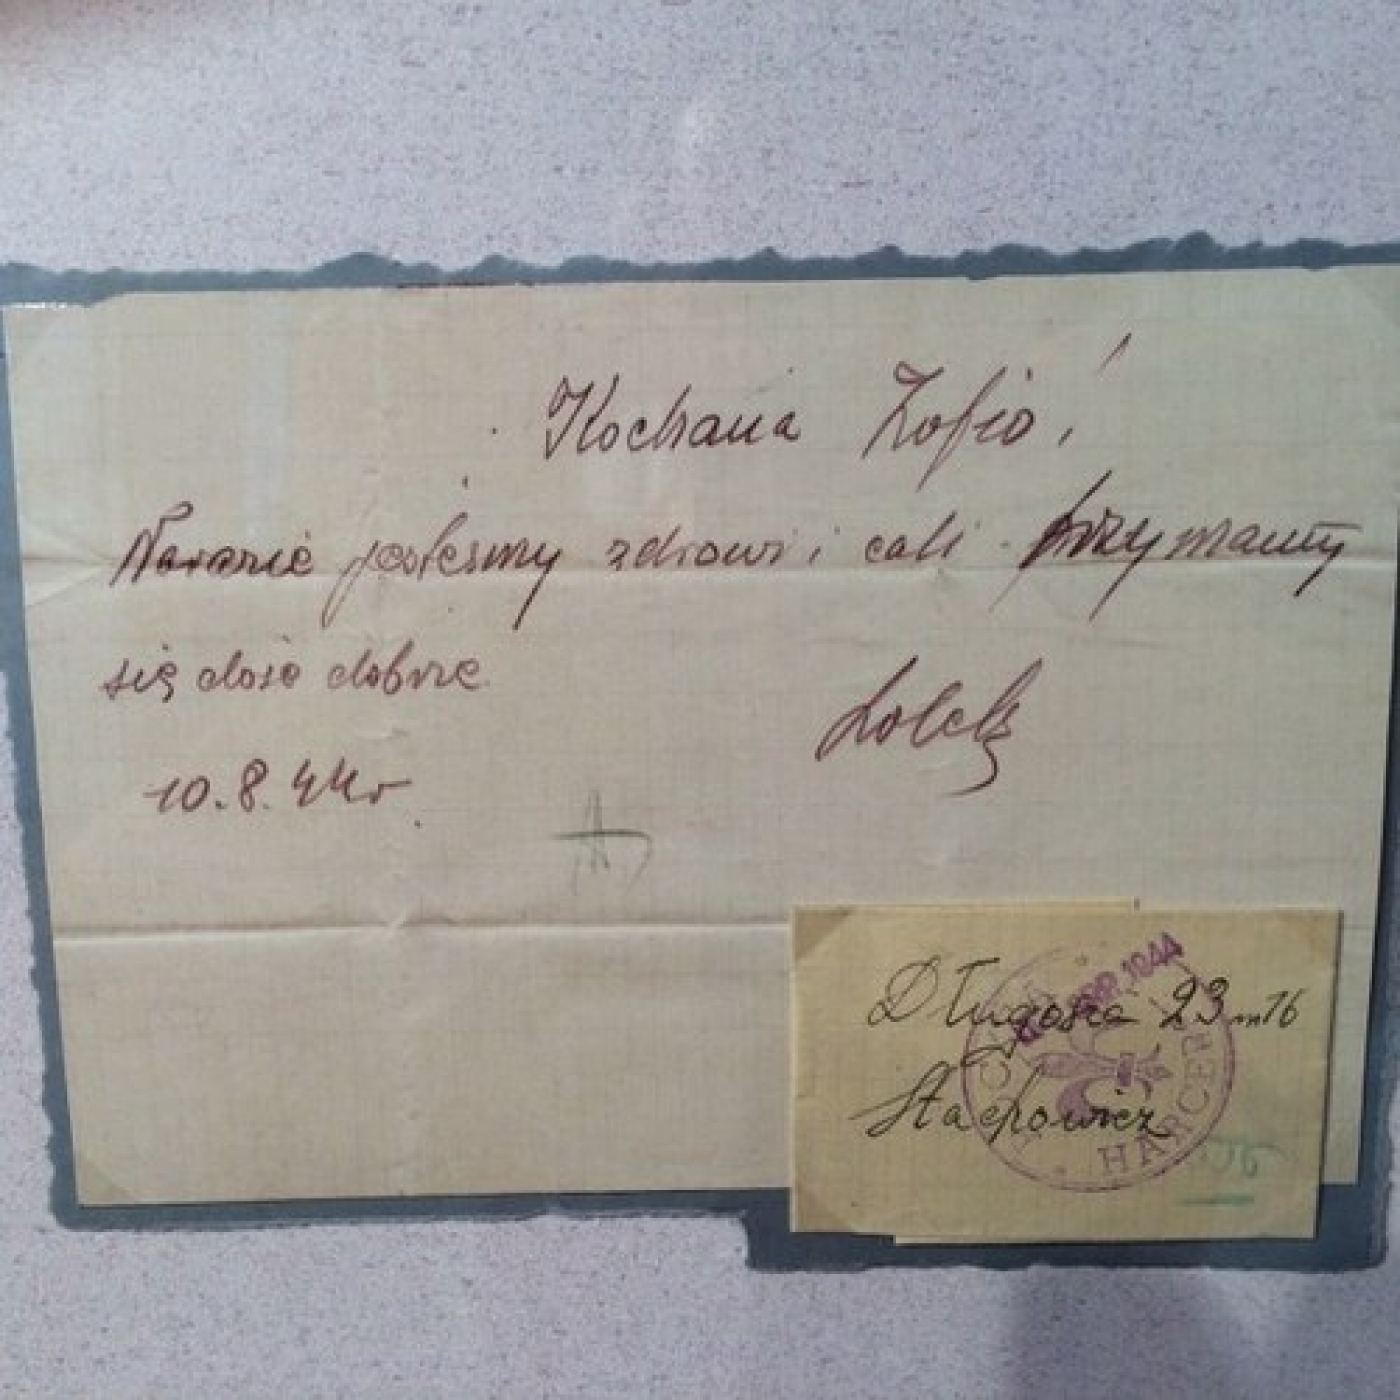 Kochana Zofio!
Narazie jesteśmy zdrowi i cali. Trzymamy
się dość dobrze.
Lolek
10.8.44r
Długosza 23 m 16
Stachowicz
SIERP. 1944
POCZTA HARCERSKA